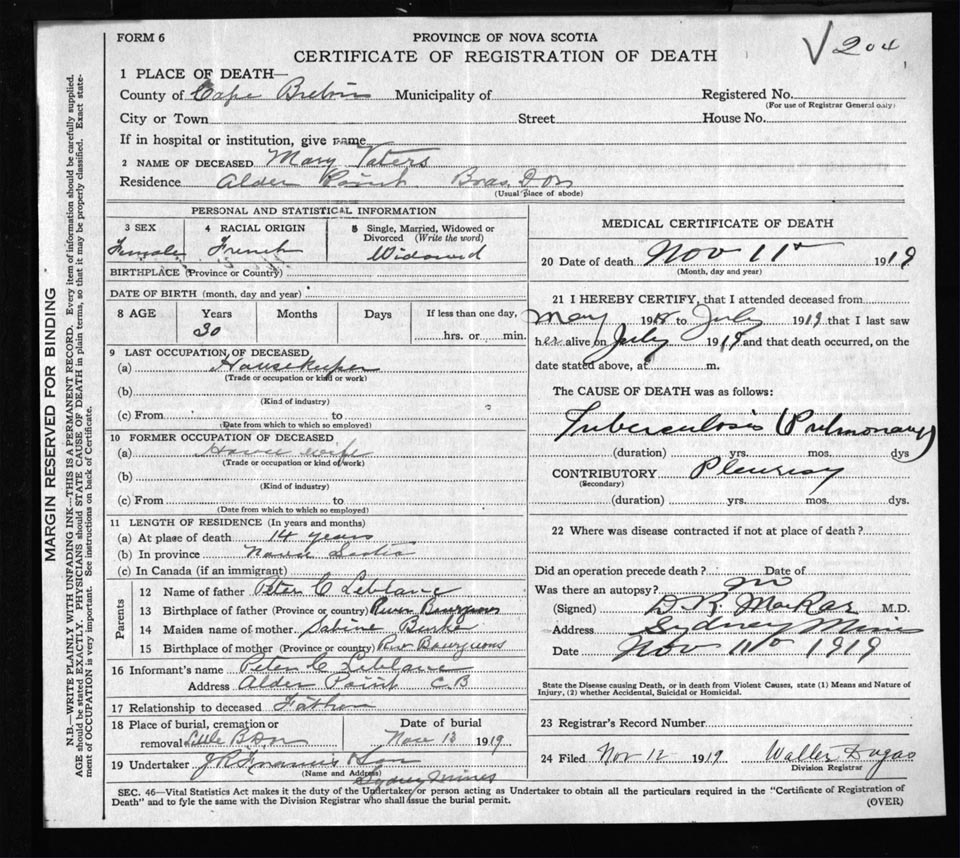 FORM 6
PROVINCE OF NOVA SCOTIA
CERTIFICATE OF REGISTRATION OF DEATH
√ 204
1 PLACE OF DEATH—
County of Cape Breton Municipality of Registered No.
(For use of Registrar General only)
City or Town Street House No.
If in hospital or institution, give name
2 NAME OF DECEASED Mary Vaters
Residence Alder Point Bras D'Or
(Usual place of abode)
PERSONAL AND STATISTICAL INFORMATION
3 SEX Female
4 RACIAL ORIGIN French
5 Single, Married, Widowed or Divorced (Write the word) Widowed
BIRTHPLACE (Province or Country)
DATE OF BIRTH (month, day and year)
8 AGE Years Months Days If less than one day,
30 hrs. or min.
9 LAST OCCUPATION OF DECEASED
(a) Housekeeper
(Trade or occupation or kind or work)
(b)
(Kind of industry)
(c) From to
(Date from which to which so employed)
10 FORMER OCCUPATION OF DECEASED
(a) House wife
(Trade or occupation or kind of work)
(b)
(Kind of industry)
(c) From to
(Date from which to which so employed)
11 LENGTH OF RESIDENCE (In years and months)
(a) At place of death 14 years
(b) In province Nova Scotia
(c) In Canada (if an immigrant)
Parents
12 Name of father Peter C Leblanc
13 Birthplace of father (Province or country) River Bourgeous
14 Maiden name of mother Sabine Burke
15 Birthplace of mother (Province or country) River Bourgeous
16 Informant's name Peter C Leblanc
Address Alder Point C.B
17 Relationship to deceased Father
18 Place of burial, cremation or removal Little B Dor
Date of burial Nov 13 1919
19 Undertaker J R Francis & Son
(Name and Address)
Sydney Mines
MEDICAL CERTIFICATE OF DEATH
20 Date of death Nov 11th 1919
(Month, day and year)
21 I HEREBY CERTIFY, that I attended deceased from
May 1918 to July 1919 that I last saw
her alive on July 1919 and that death occurred, on the
date stated above, at m.
The CAUSE OF DEATH was as follows:
Tuberculosis (Pulmonary)
(duration) yrs. mos. dys
CONTRIBUTORY Pleurisy
(Secondary)
(duration) yrs. mos. dys.
22 Where was disease contracted if not at place of death?
Did an operation precede death? Date of
Was there an autopsy? no
(Signed) D. R. MacRae M.D.
Address Sydney Mines
Date Nov 11th 1919
State the Disease causing Death, or in death from Violent Causes, state (1) Means and Nature of
Injury, (2) whether Accidental, Suicidal or Homicidal.
23 Registrar's Record Number
24 Filed Nov 12 1919 Walter Dugas
Division Registrar
SEC. 46—Vital Statistics Act makes it the duty of the Undertaker or person acting as Undertaker to obtain all the particulars required in the "Certificate of Registration of
Death" and to fyle the same with the Division Registrar who shall issue the burial permit.
(OVER)
MARGIN RESERVED FOR BINDING
N.B.—WRITE PLAINLY WITH UNFADING INK—THIS IS A PERMANENT RECORD. Every item of information should be carefully supplied.
AGE should be stated EXACTLY. PHYSICIANS should STATE CAUSE OF DEATH in plain terms, so that it may be properly classified. Exact state-
ment of OCCUPATION is very important. See instructions on back of Certificate.